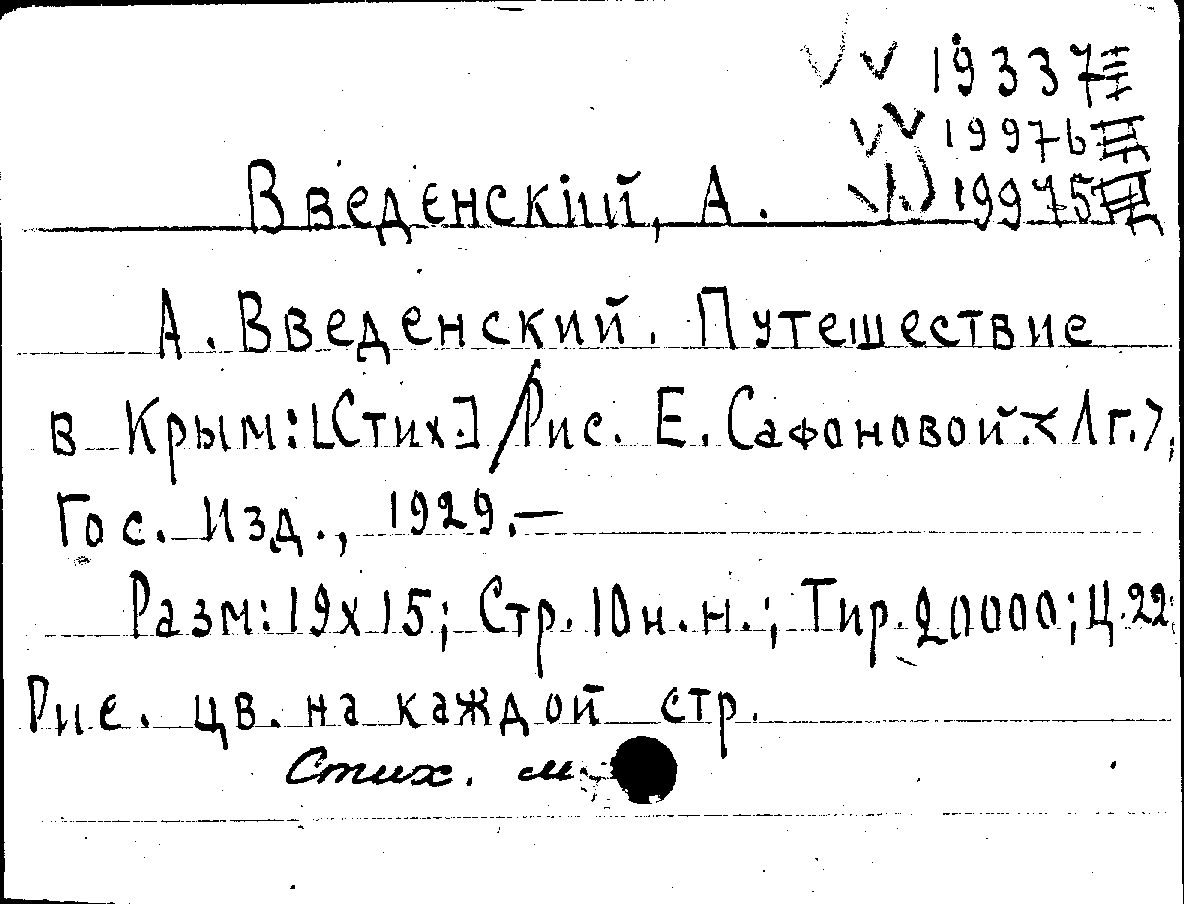 19337
19976
19975
Введенскiий, А.
А. Введенский. Путешествие
в Крым: [Стих.] / Рис. Е. Сафоновой. < Лг. >,
Гос. Изд., 1929. —
Разм: 19х15; Стр. 10 н. н.; Тир. 20000; Ц. 22;
Рис. цв. на каждой стр.
Стих.